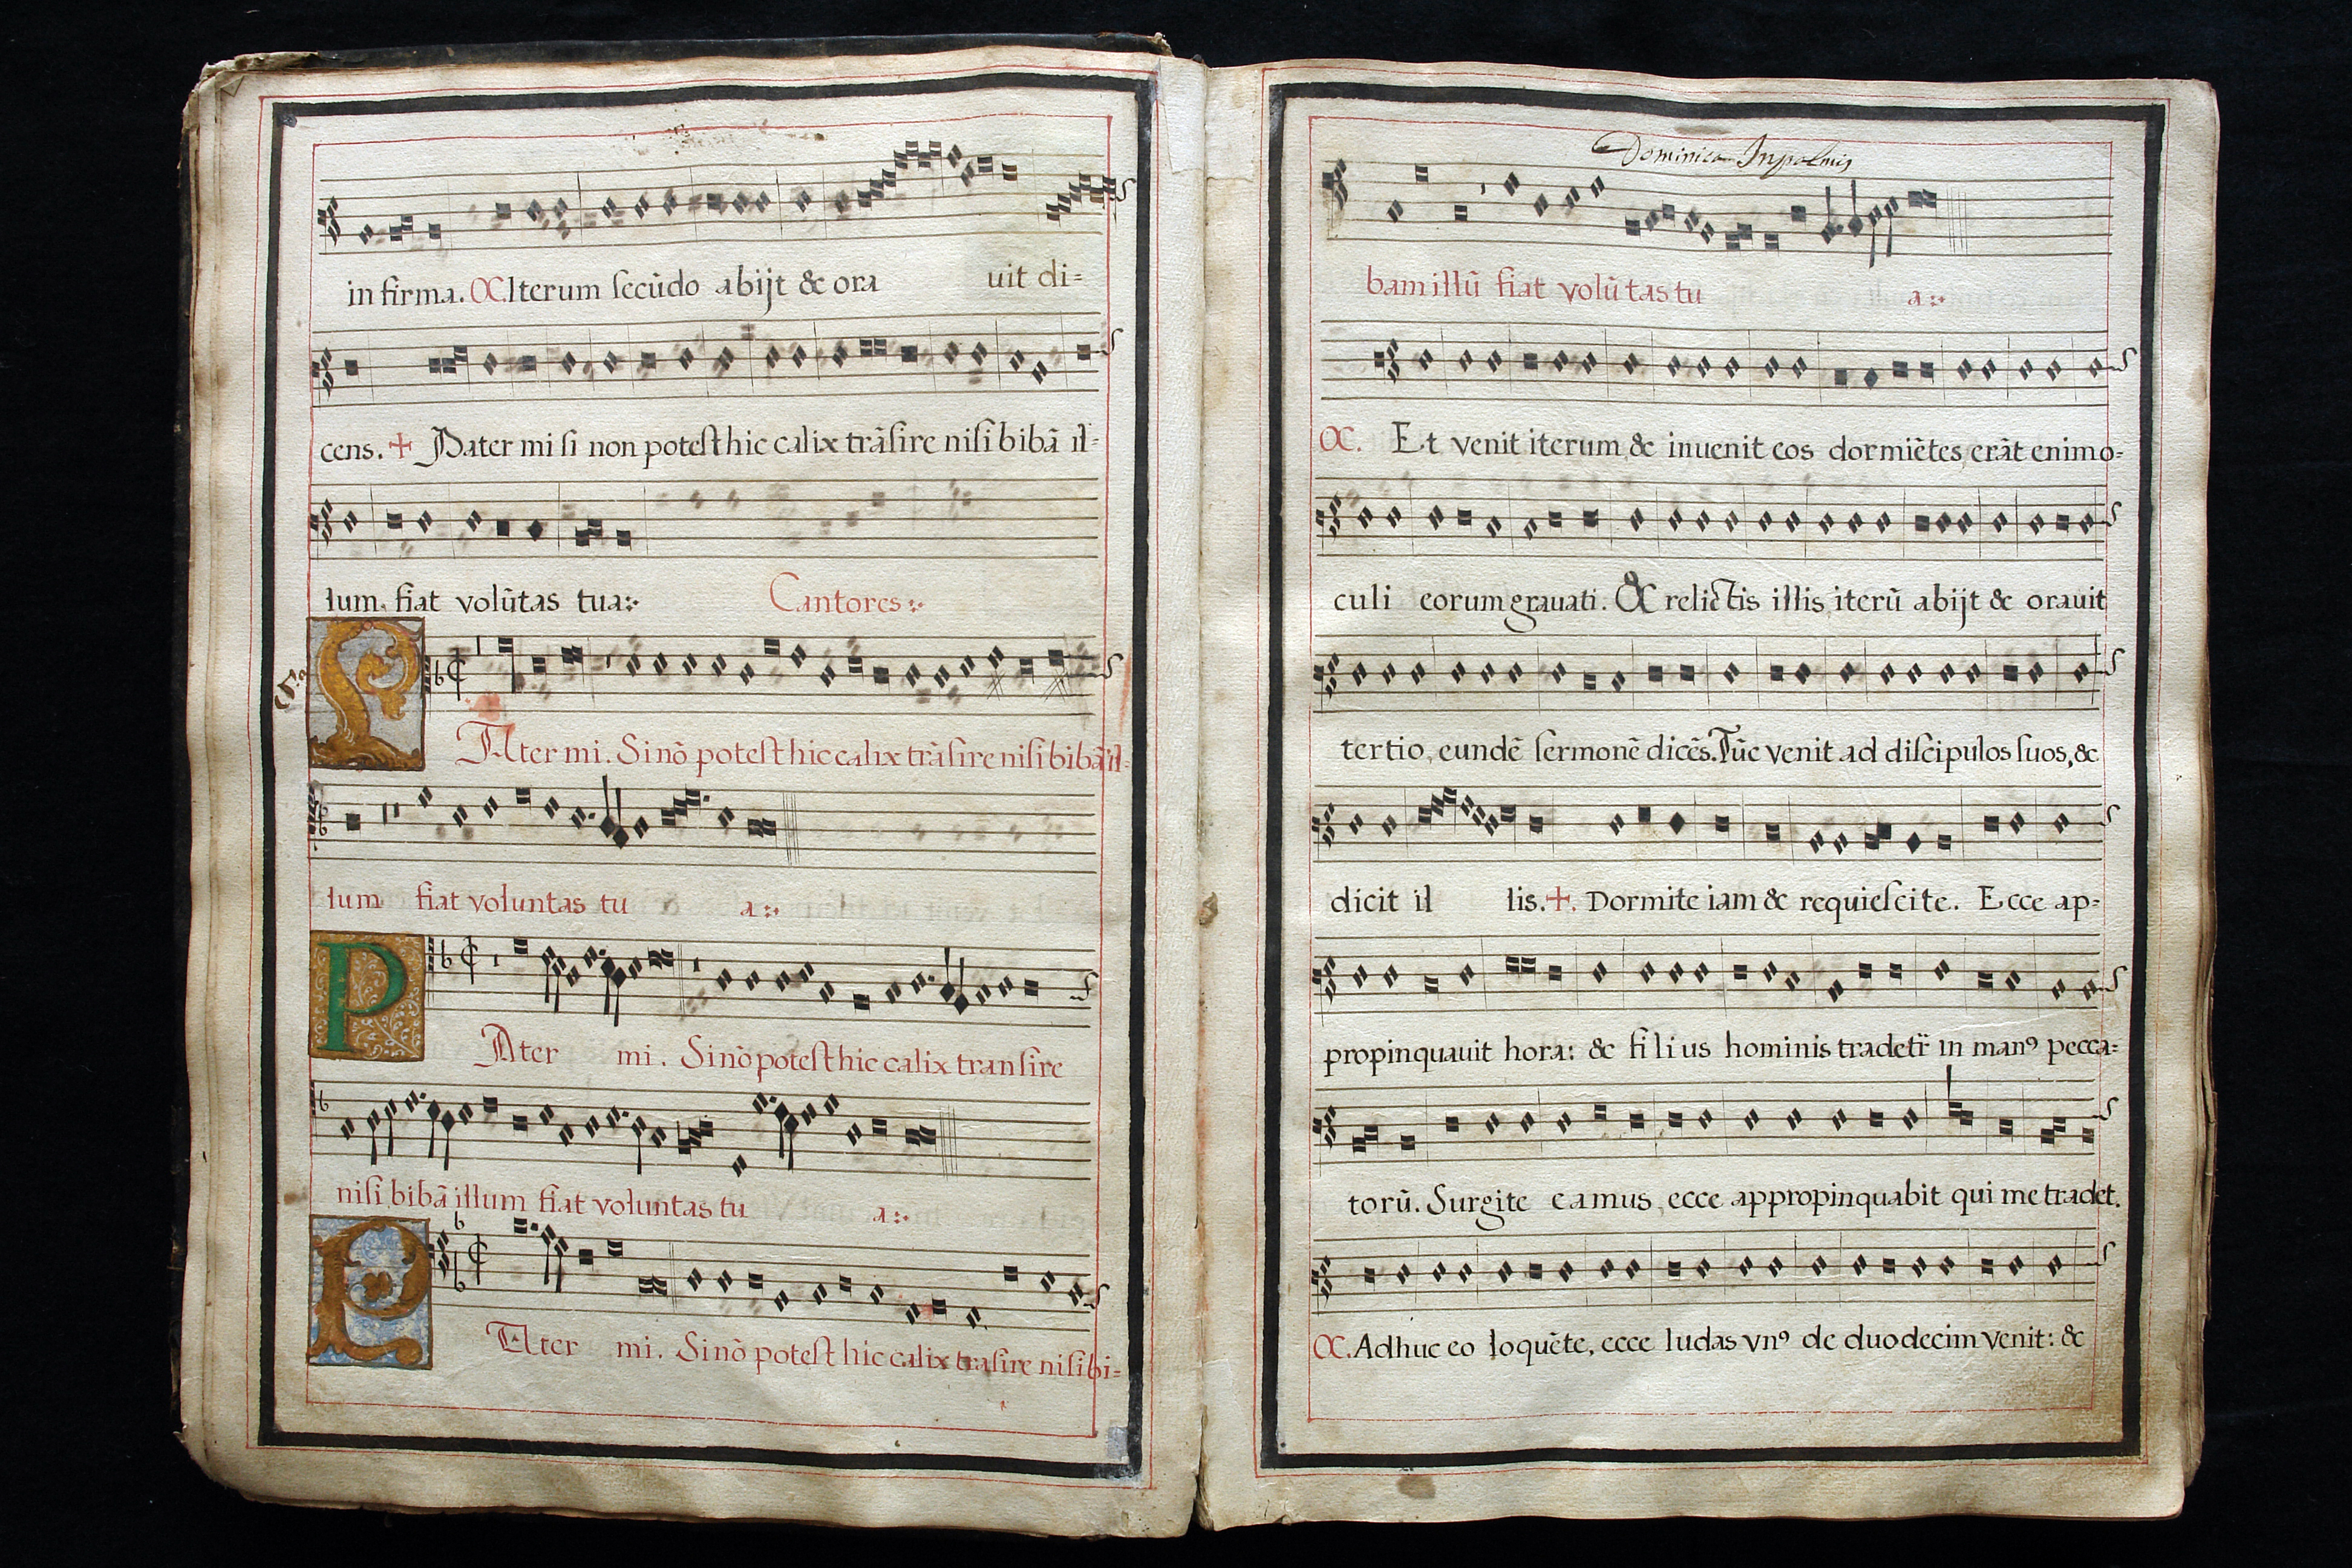 in firma. C. Iterum secūdo abijt & ora uit di=
cens. + Pater mi si non potest hic calix trāsire nisi bibā il=
lum. fiat volūtas tua:
Cantores:
Ater mi. Si nō potest hic calix trāsire nisi bibā il=
lum fiat voluntas tu a:
P
Ater mi. Si nō potest hic calix transire
nisi bibā illum fiat voluntas tu a:
P
Ater mi. Si nō potest hic calix trāsire nisi bi=
Dominica In palmis
bam illū fiat volūtas tu a:
C. Et venit iterum & inuenit eos dormiētes, erāt enim o=
culi eorum grauati. & relictis illis iterū abijt & orauit
tertio, eundē sermonē dicēs. Tūc venit ad discipulos suos, &
dicit il lis. +. Dormite iam & requiescite. Ecce ap=
propinquauit hora: & filius hominis tradetr̄ in manꝰ pecca=
torū. Surgite eamus, ecce appropinquabit qui me tradet.
C. Adhuc eo loquēte, ecce Iudas vnꝰ de duodecim venit: &